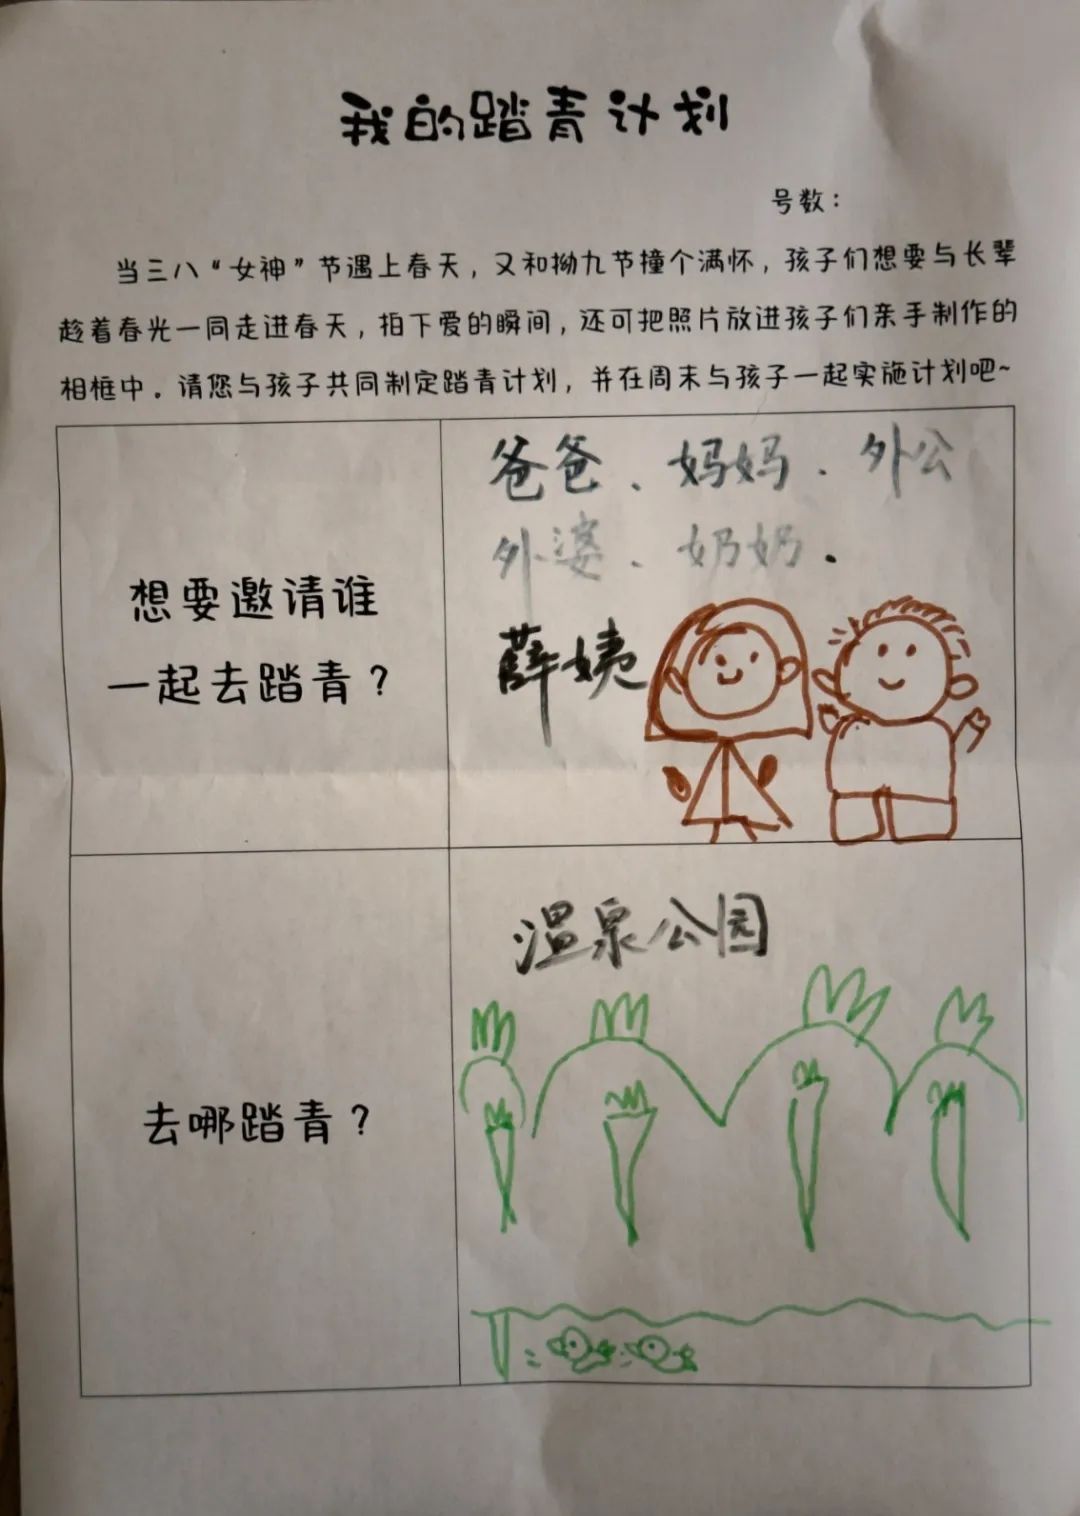 我的踏青计划
号数：
当三八“女神”节遇上春天，又和拗九节撞个满怀，孩子们想要与长辈
趁着春光一同走进春天，拍下爱的瞬间，还可把照片放进孩子们亲手制作的
相框中。请您与孩子共同制定踏青计划，并在周末与孩子一起实施计划吧~
想要邀请谁
一起去踏青？
爸爸、妈妈、外公
外婆、奶奶.
薛姨
去哪踏青？
温泉公园